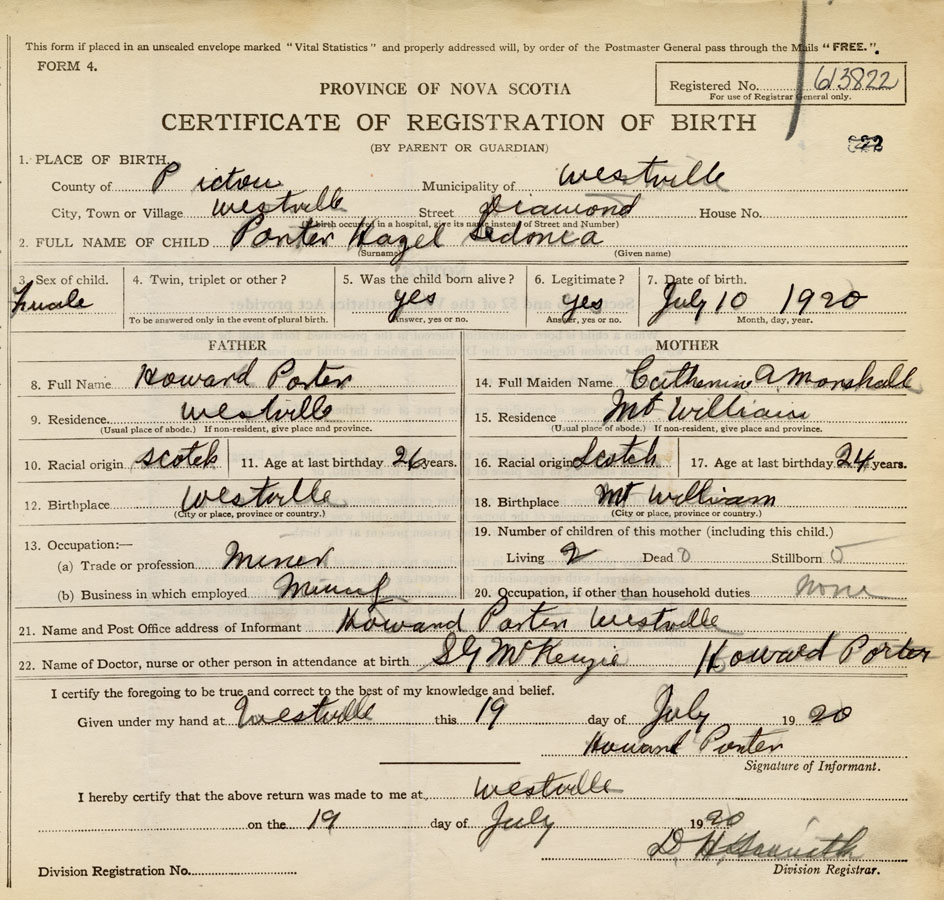 This form if placed in an unsealed envelope marked "Vital Statistics" and properly addressed will, by order of the Postmaster General pass through the Mails "FREE."
FORM 4.
Registered No. 613822
For use of Registrar General only.
PROVINCE OF NOVA SCOTIA
CERTIFICATE OF REGISTRATION OF BIRTH
(BY PARENT OR GUARDIAN)
1. PLACE OF BIRTH
County of Pictou Municipality of Westville
City, Town or Village Westville Street Diamond House No.
(If birth occurred in a hospital, give its name instead of Street and Number)
2. FULL NAME OF CHILD Porter Hazel Sedonia
(Surname) (Given name)
3. Sex of child. 4. Twin, triplet or other? 5. Was the child born alive? 6. Legitimate? 7. Date of birth.
yes yes July 10 1920
To be answered only in the event of plural birth. Answer, yes or no. Answer, yes or no. Month, day, year.
FATHER MOTHER
8. Full Name Howard Porter 14. Full Maiden Name Catherine A Marshall
9. Residence. Westville 15. Residence Mt William
(Usual place of abode.) If non-resident, give place and province. (Usual place of abode.) If non-resident, give place and province.
10. Racial origin Scotch 11. Age at last birthday 26 years. 16. Racial origin Scotch 17. Age at last birthday 24 years.
12. Birthplace Westville 18. Birthplace Mt William
(City or place, province or country.) (City or place, province or country.)
13. Occupation:— 19. Number of children of this mother (including this child.)
(a) Trade or profession Miner Living 2 Dead 0 Stillborn 0
(b) Business in which employed Mining 20. Occupation, if other than household duties none
21. Name and Post Office address of Informant Howard Porter Westville
22. Name of Doctor, nurse or other person in attendance at birth S G McKenzie Howard Porter
I certify the foregoing to be true and correct to the best of my knowledge and belief.
Given under my hand at Westville this 19 day of July 19 20
Howard Porter
Signature of Informant.
I hereby certify that the above return was made to me at Westville
on the 19 day of July 19 20
D. H.
Division Registration No. Division Registrar.